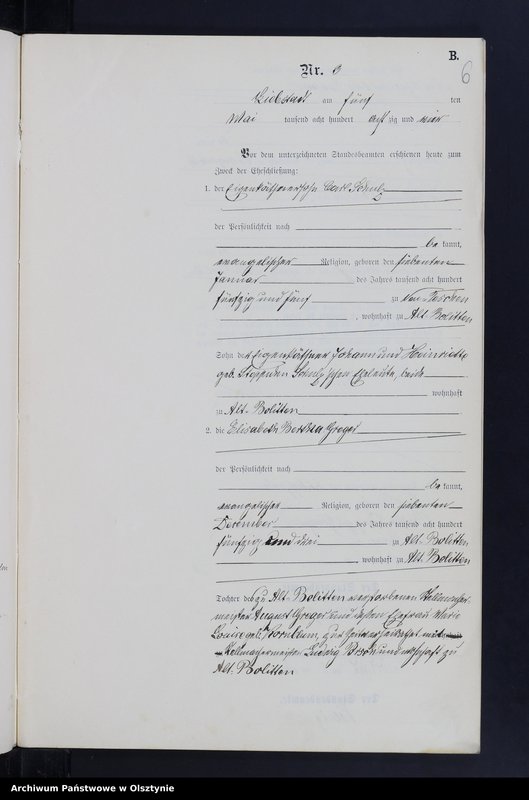 B.
6
Nr. 6
Liebstadt am fünf ten
Mai tausend acht hundert acht zig und vier
Vor dem unterzeichneten Standesbeamten erschienen heute zum
Zweck der Eheschließung:
1. der Eigenkäthnersohn Carl Schulz
der Persönlichkeit nach
be kannt,
evangelischer Religion, geboren den siebenten
Januar des Jahres tausend acht hundert
fünfzig und fünf zu
, wohnhaft zu Alt-Bolitten
Sohn der Eigenkäthner Johann und Henriette
geb. Schulz'schen Eheleute, beide
wohnhaft
zu Alt-Bolitten
2. die Elisabeth Bertha Greger
der Persönlichkeit nach
be kannt,
evangelischer Religion, geboren den siebenten
Dezember des Jahres tausend acht hundert
fünfzig und drei zu Alt-Bolitten
, wohnhaft zu Alt-Bolitten
Tochter des zu Alt-Bolitten verstorbenen
meister August Greger und dessen Ehefrau Marie
Louise geb. Kornblum,
Stellmachermeister Ludwig und wohnhaft zu
Alt-Bolitten
Archiwum Państwowe w Olsztynie